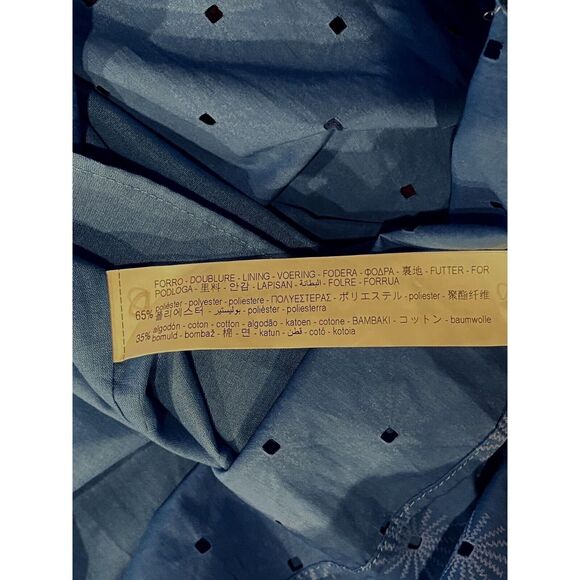 FORRO - DOUBLURE - LINING - VOERING - FODERA - ΦΟΔΡΑ - 裏地 - FUTTER - FOR
PODLOGA - 里料 - 안감 - LAPISAN - البطانة - FOLRE - FORRUA
poliéster - polyester - poliestere - ΠΟΛΥΕΣΤΕΡΑΣ - ポリエステル - poliester - 聚酯纤维
65% 폴리에스터 - بوليستير - polièster - poliesterra
algodón - coton - cotton - algodão - katoen - cotone - BAMBAKI - コットン - baumwolle
35% bomuld - bombaž - 棉 - 면 - katun - قطن - cotó - kotoia